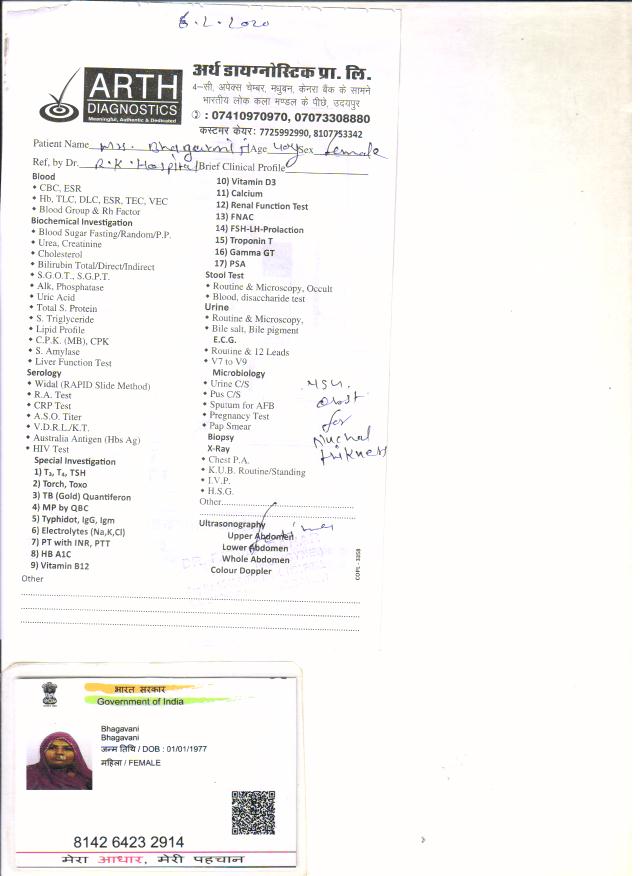 6.2.2020
ARTH
DIAGNOSTICS
Meaningful, Authentic & Dedicated
अर्थ डायग्नोस्टिक प्रा. लि.
4-सी, अपेक्स चेम्बर, मधुबन, केनरा बैंक के सामने
भारतीय लोक कला मण्डल के पीछे, उदयपुर
: 07410970970, 07073308880
कस्टमर केयर: 7725992990, 8107753342
Patient Name Mrs. Age 40y Sex female
Ref, by Dr. R.K. Hospital Brief Clinical Profile
Blood
CBC, ESR
Hb, TLC, DLC, ESR, TEC, VEC
Blood Group & Rh Factor
Biochemical Investigation
Blood Sugar Fasting/Random/P.P.
Urea, Creatinine
Cholesterol
Bilirubin Total/Direct/Indirect
S.G.O.T., S.G.P.T.
Alk, Phosphatase
Uric Acid
Total S. Protein
S. Triglyceride
Lipid Profile
C.P.K. (MB), CPK
S. Amylase
Liver Function Test
Serology
Widal (RAPID Slide Method)
R.A. Test
CRP Test
A.S.O. Titer
V.D.R.L./K.T.
Australia Antigen (Hbs Ag)
HIV Test
Special Investigation
1) T₃, T₄, TSH
2) Torch, Toxo
3) TB (Gold) Quantiferon
4) MP by QBC
5) Typhidot, IgG, Igm
6) Electrolytes (Na,K,Cl)
7) PT with INR, PTT
8) HB A1C
9) Vitamin B12
Other
10) Vitamin D3
11) Calcium
12) Renal Function Test
13) FNAC
14) FSH-LH-Prolaction
15) Troponin T
16) Gamma GT
17) PSA
Stool Test
Routine & Microscopy, Occult
Blood, disaccharide test
Urine
Routine & Microscopy,
Bile salt, Bile pigment
E.C.G.
Routine & 12 Leads
V7 to V9
Microbiology
Urine C/S
Pus C/S
Sputum for AFB
Pregnancy Test
Pap Smear
Biopsy
X-Ray
Chest P.A.
K.U.B. Routine/Standing
I.V.P.
H.S.G.
Other
Ultrasonography
Upper Abdomen
Lower Abdomen
Whole Abdomen
Colour Doppler
USG.
Obst
for
Nuchal
thikness
COPL - 3358
भारत सरकार
Government of India
Bhagavani
Bhagavani
जन्म तिथि / DOB : 01/01/1977
महिला / FEMALE
8142 6423 2914
मेरा आधार, मेरी पहचान